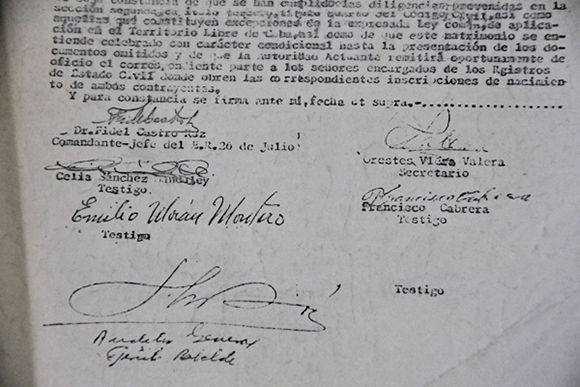 constancia de que se han cumplido las diligencias prevenidas en la
sección segunda, título cuarto del Código Civil, así como
aquellas que constituyen excepciones de la expresada Ley común, de aplica-
ción en el Territorio Libre de Cuba, así como de que este matrimonio se en-
tiende celebrado con carácter condicional hasta la presentación de los do-
cumentos omitidos y de que la autoridad Actuante remitirá oportunamente de
oficio el correspondiente parte a los señores encargados de los Rgistros
de Estado Civil donde obren las correspondientes inscripciones de nacimien-
to de ambos contrayentes.
Y para constancia se firma ante mi, fecha ut supra.-
Dr. Fidel Castro Ruz
Comandante-Jefe del E.R. 26 de Julio
Orestes Valera
Secretario
Celia Sánchez Manduley
Testigo.
Francisco Cabrera
Francisco Cabrera
Testigo
Emilio Montero
Testigo
Testigo
Auditor General
Ejército Rebelde